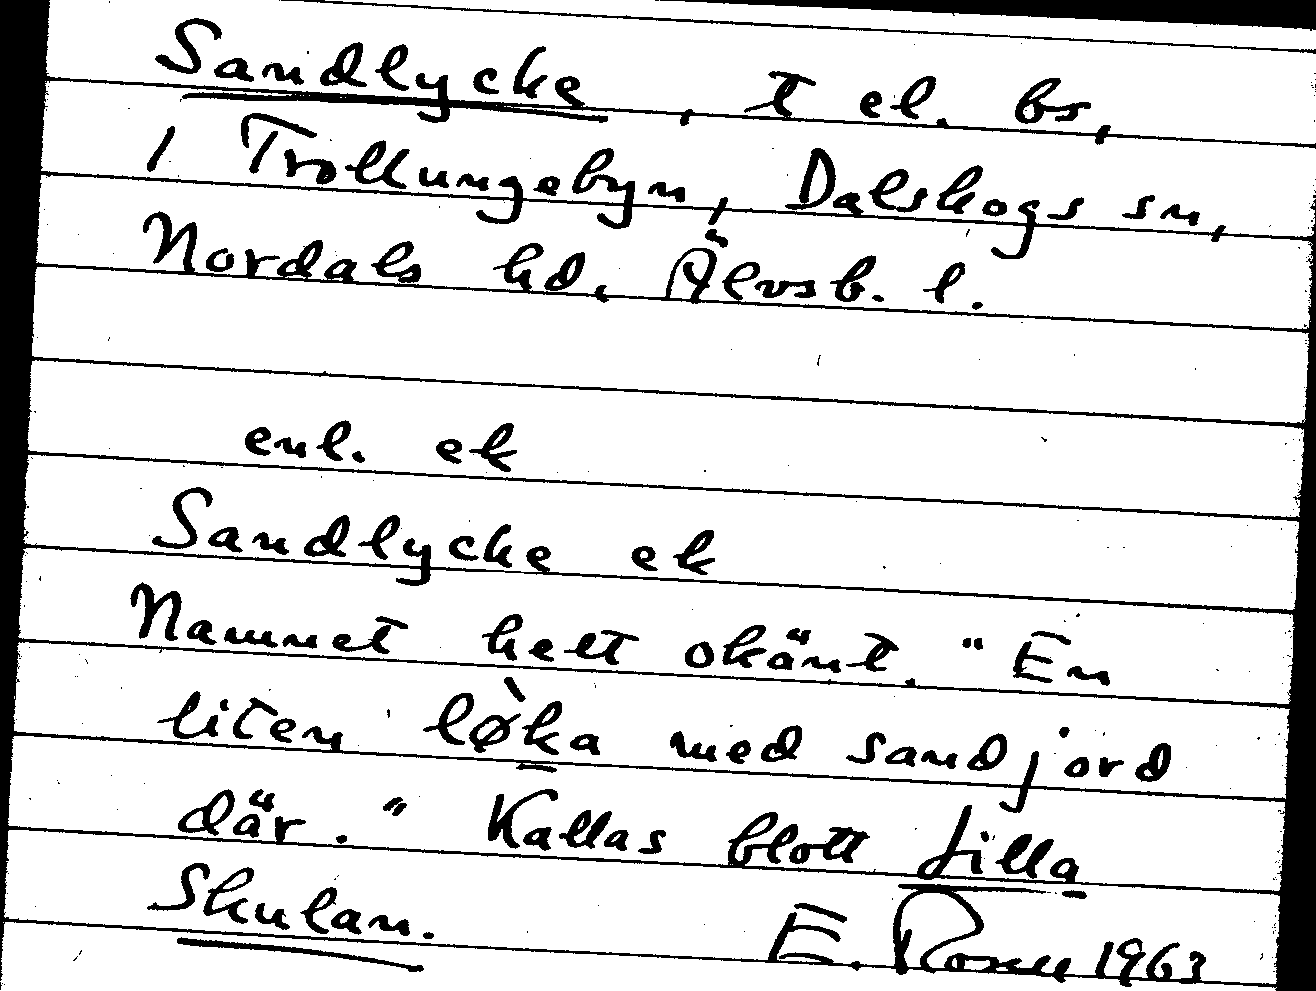 Sandlycke, t el. bs,
i Trollungebyn, Dalskogs sn,
Nordals hd. Älvsb. l.
enl. ek
Sandlycke ek
Namnet helt okänt. "En
liten lø̀ka med sandjord
där." Kallas blott Lilla
Skulan. E. Rosell 1963